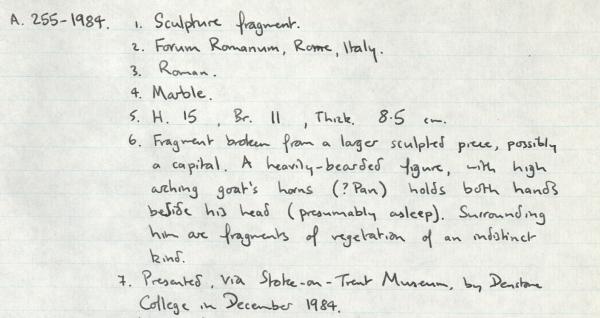 A. 255-1984. 1. Sculpture fragment.
2. Forum Romanum, Rome, Italy.
3. Roman.
4. Marble.
5. H. 15 , Br. 11 , Thick. 8.5 cm.
6. Fragment broken from a larger sculpted piece, possibly
a capital. A heavily-bearded figure, with high
arching goat's horns (? Pan) holds both hands
beside his head (presumably asleep). Surrounding
him are fragments of vegetation of an indistinct
kind.
7. Presented, via Stoke-on-Trent Museum, by Denstone
College in December 1984.